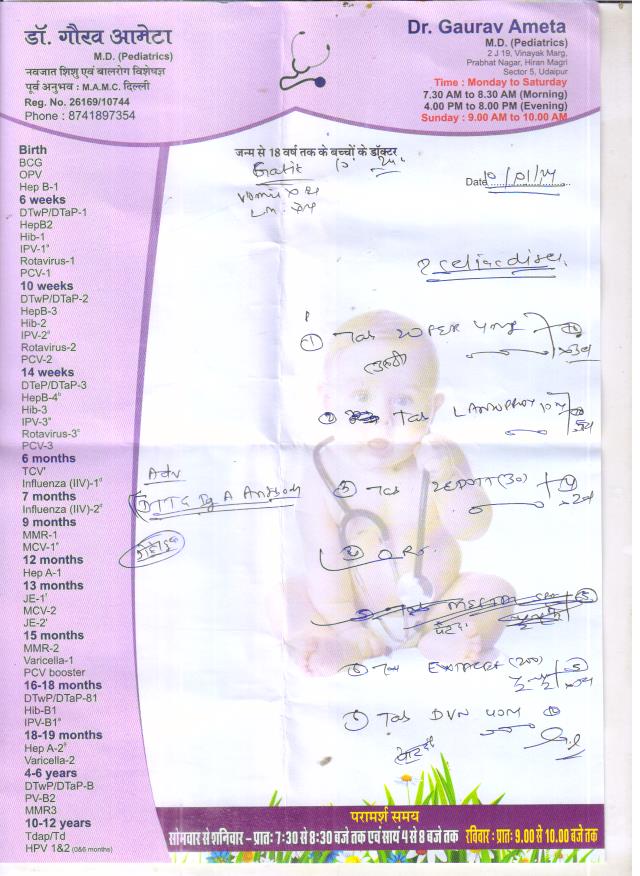 डॉ. गौरव आमेटा
M.D. (Pediatrics)
नवजात शिशु एवं बालरोग विशेषज्ञ
पूर्व अनुभव : M.A.M.C. दिल्ली
Reg. No. 26169/10744
Phone : 8741897354
Dr. Gaurav Ameta
M.D. (Pediatrics)
2 J 19, Vinayak Marg,
Prabhat Nagar, Hiran Magri
Sector 5, Udaipur
Time : Monday to Saturday
7.30 AM to 8.30 AM (Morning)
4.00 PM to 8.00 PM (Evening)
Sunday : 9.00 AM to 10.00 AM
जन्म से 18 वर्ष तक के बच्चों के डॉक्टर
Date 10/01/24
Birth
BCG
OPV
Hep B-1
6 weeks
DTwP/DTaP-1
HepB2
Hib-1
IPV-1
Rotavirus-1
PCV-1
10 weeks
DTwP/DTaP-2
HepB-3
Hib-2
IPV-2
Rotavirus-2
PCV-2
14 weeks
DTeP/DTaP-3
HepB-4
Hib-3
IPV-3
Rotavirus-3
PCV-3
6 months
TCV
Influenza (IIV)-1
7 months
Influenza (IIV)-2
9 months
MMR-1
MCV-1
12 months
Hep A-1
13 months
JE-1
MCV-2
JE-2
15 months
MMR-2
Varicella-1
PCV booster
16-18 months
DTwP/DTaP-81
Hib-B1
IPV-B1
18-19 months
Hep A-2
Varicella-2
4-6 years
DTwP/DTaP-B
PV-B2
MMR3
10-12 years
Tdap/Td
HPV 1&2 (0&6 months)
? celiac disea.
① Tab ZOFER 4mg
② Tab LANZOPROT 10 mg
Adv
① TTG Ig A Antibody
③ Tab ZEDOTT (30)
④ ORS.
⑥ Tab (200)
⑦ Tab DVN 40M
परामर्श समय
सोमवार से शनिवार - प्रातः 7:30 से 8:30 बजे तक एवं सायं 4 से 8 बजे तक रविवार : प्रातः 9.00 से 10.00 बजे तक